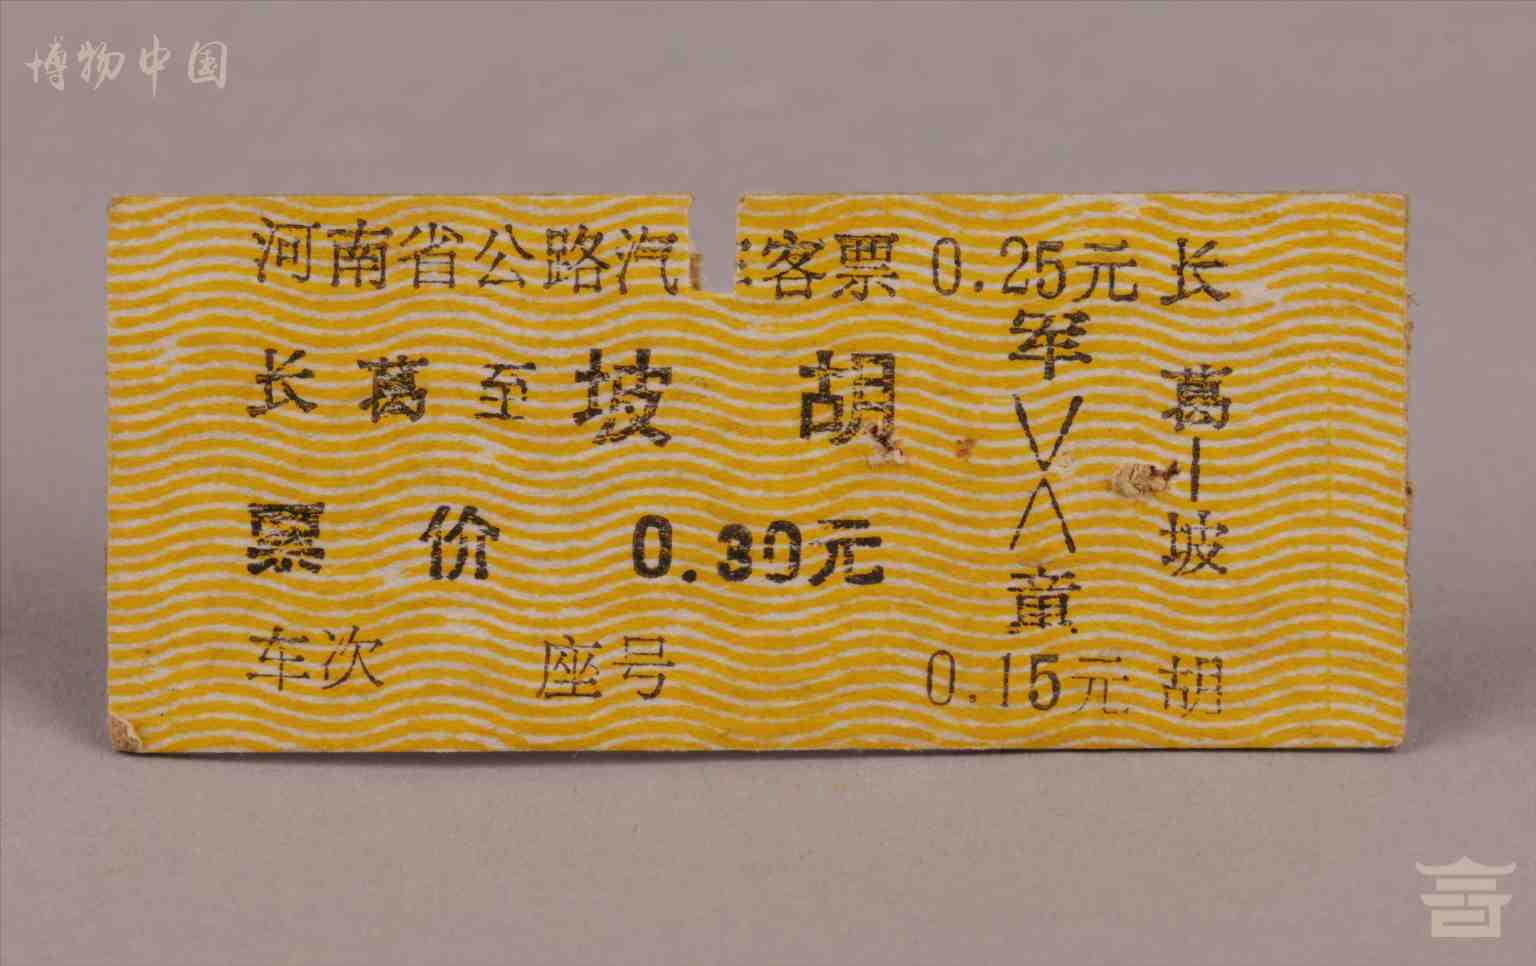 博物中国
河南省公路汽车客票
长葛至坡胡
票价 0.30元
车次 座号
0.25元
军
童
0.15元
长葛—坡胡